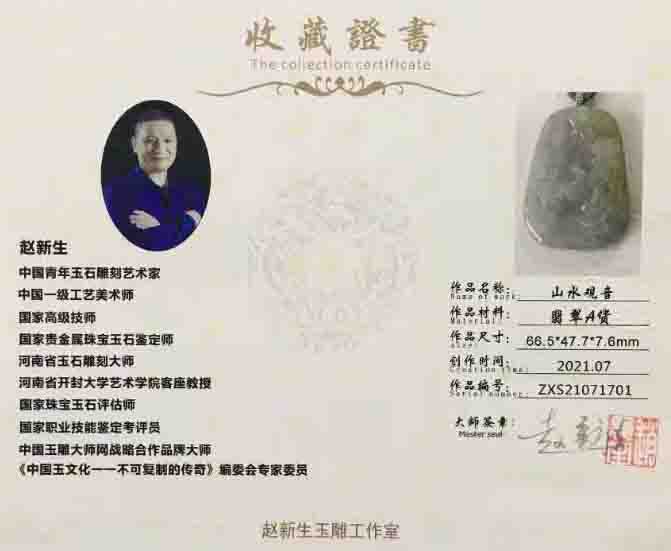 收藏證書
The collection certificate
赵新生
中国青年玉石雕刻艺术家
中国一级工艺美术师
国家高级技师
国家贵金属珠宝玉石鉴定师
河南省玉石雕刻大师
河南省开封大学艺术学院客座教授
国家珠宝玉石评估师
国家职业技能鉴定考评员
中国玉雕大师网战略合作品牌大师
《中国玉文化一一不可复制的传奇》编委会专家委员
作品名称: 山水观音
Name of work:
作品材料: 翡翠A货
Material:
作品尺寸: 66.5*47.7*7.6mm
size:
创作时间: 2021.07
Creation time:
作品编号: ZXS21071701
Serial number:
大师签章:
Master seal:
赵新生玉雕工作室